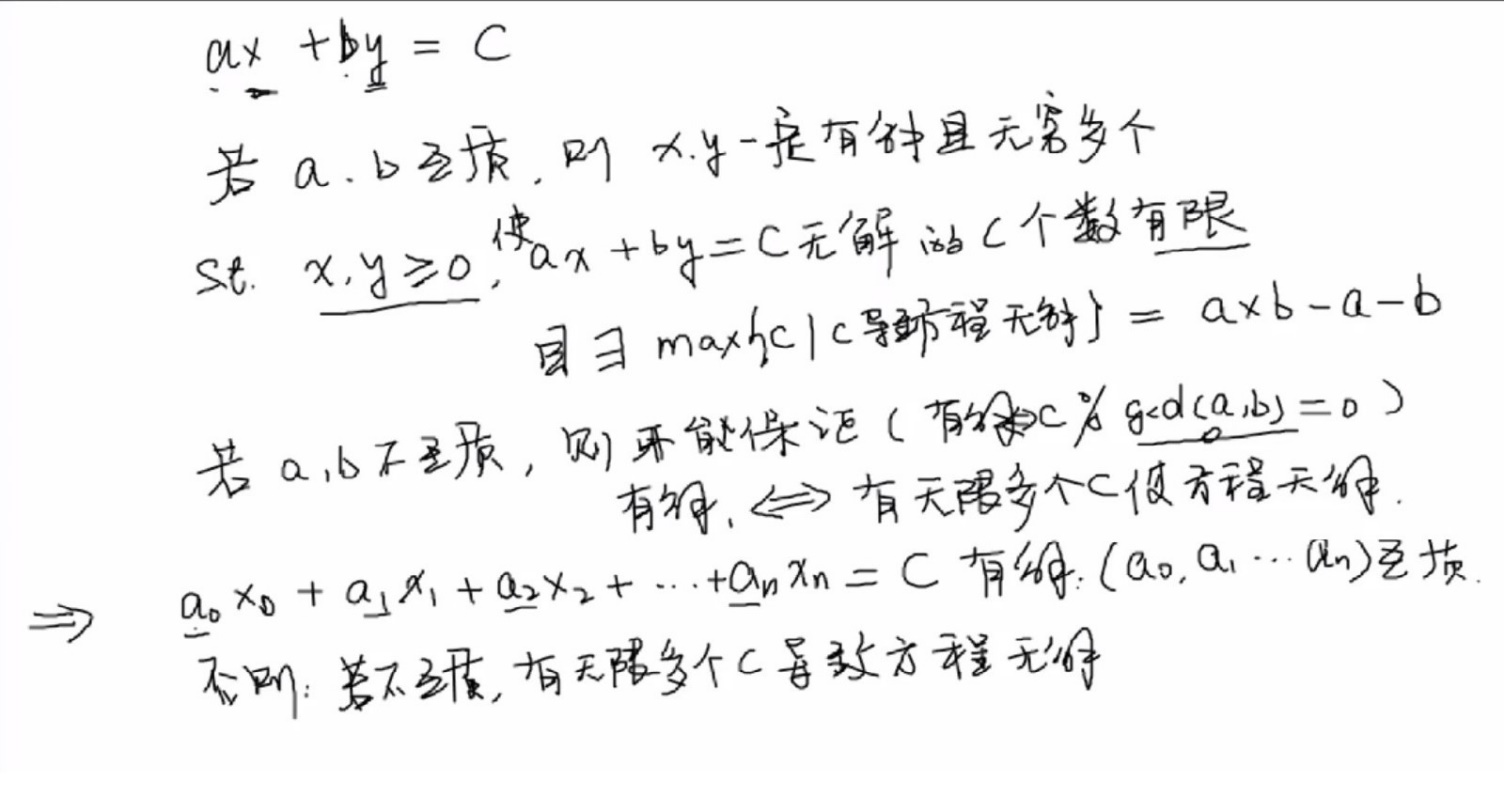 ax + by = C
若 a.b互质, 则 x.y一定有解且无穷多个
St. x,y≥0, 使ax + by = C无解的C个数有限
且∃ max{C | C导致方程无解} = a×b-a-b
若 a,b不互质, 则不能保证 (有解⇔C % gcd(a,b) = 0)
有解, ⟺ 有无限多个C使方程无解.
⇒ a₀x₀ + a₁x₁ + a₂x₂ + … + aₙxₙ = C 有解: (a₀, a₁ … aₙ)互质.
否则: 若不互质, 有无限多个C导致方程无解